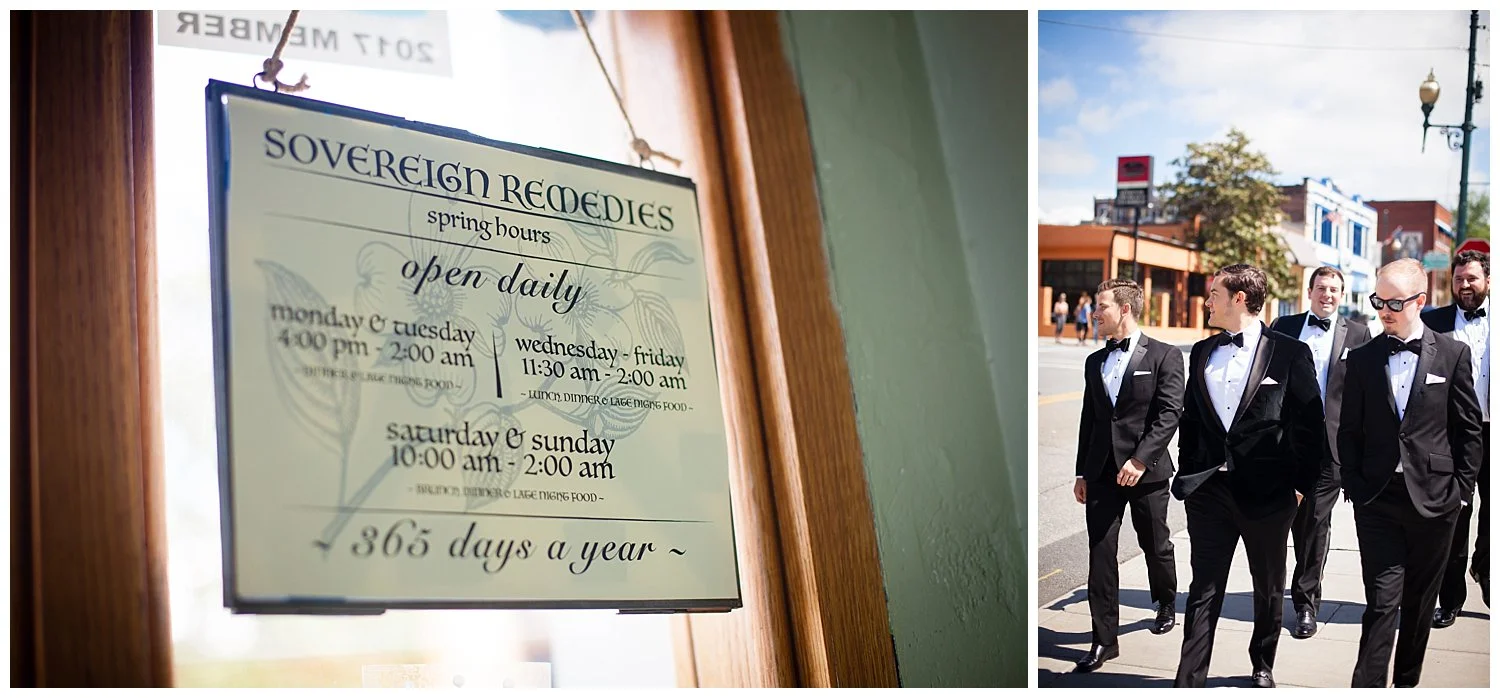 2017 MEMBER
SOVEREIGN REMEDIES
spring hours
open daily
monday & tuesday
4:00 pm - 2:00 am
~ DINNER & LATE NIGHT FOOD ~
wednesday - friday
11:30 am - 2:00 am
~ LUNCH, DINNER & LATE NIGHT FOOD ~
saturday & sunday
10:00 am - 2:00 am
~ BRUNCH, DINNER & LATE NIGHT FOOD ~
~ 365 days a year ~